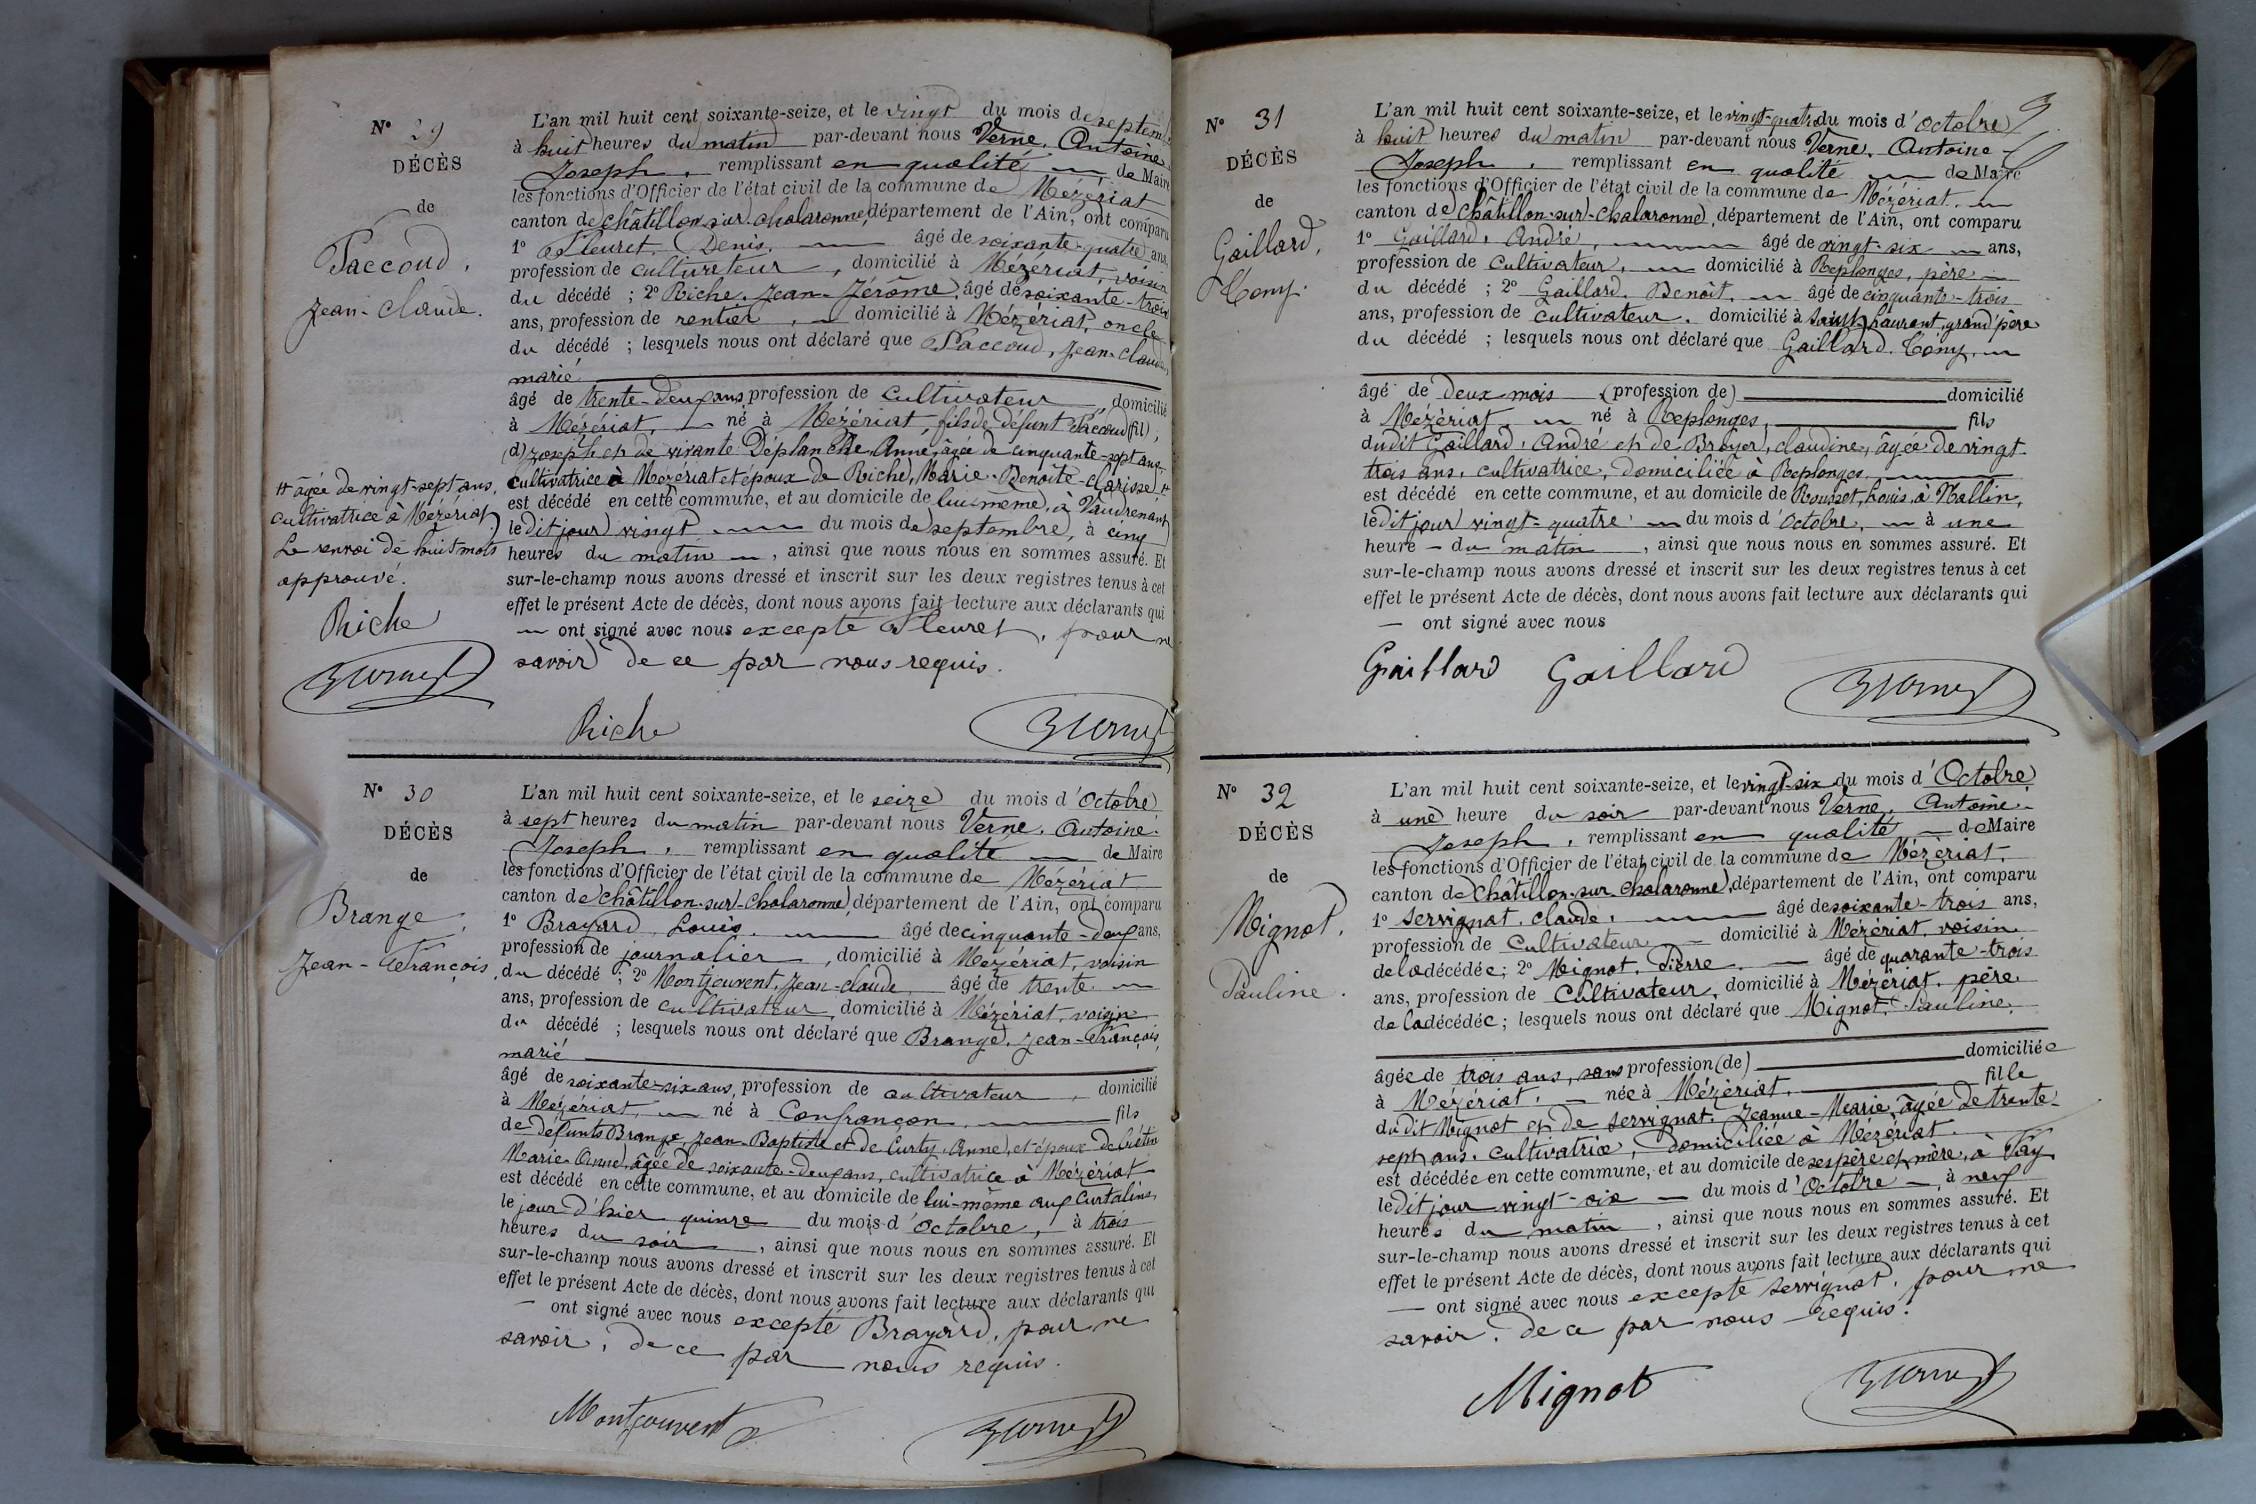 N° 29
DÉCÈS
de
Paccoud,
Jean-Claude.
L'an mil huit cent soixante-seize, et le vingt du mois de septembre
à huit heures du matin par-devant nous Verne, Antoine
Joseph, remplissant en qualité de Maire
les fonctions d'Officier de l'état civil de la commune de Mézériat
canton de Châtillon-sur-Chalaronne, département de l'Ain, ont comparu
1° Fleuret, Denis, âgé de soixante-quatre ans,
profession de cultivateur, domicilié à Mézériat, voisin
du décédé ; 2° Riche, Jean-Jérôme, âgé de soixante-trois
ans, profession de rentier, domicilié à Mézériat, oncle
du décédé ; lesquels nous ont déclaré que Paccoud, Jean-Claude,
marié
âgé de trente-deux ans profession de cultivateur, domicilié
à Mézériat, né à Mézériat, fils de défunt Paccoud (fil),
(d) Joseph et de vivante Déplanche, Anne, âgée de cinquante-sept ans,
cultivatrice à Mézériat et époux de Riche, Marie-Benoite-Clarisse, #
est décédé en cette commune, et au domicile de lui-même, à Vaudrenant
le dit jour vingt du mois de septembre, à cinq
heures du matin, ainsi que nous nous en sommes assuré. Et
sur-le-champ nous avons dressé et inscrit sur les deux registres tenus à cet
effet le présent Acte de décès, dont nous avons fait lecture aux déclarants qui
— ont signé avec nous excepté Fleuret, pour ne
savoir de ce par nous requis.
# âgée de vingt-sept ans,
cultivatrice à Mézériat
Le renvoi de huit mots
approuvé.
Riche
Verne
Riche
Verne
N° 30
DÉCÈS
de
Brange,
Jean-François.
L'an mil huit cent soixante-seize, et le seize du mois d'Octobre
à sept heures du matin par-devant nous Verne, Antoine-
Joseph, remplissant en qualité de Maire
les fonctions d'Officier de l'état civil de la commune de Mézériat
canton de Châtillon-sur-Chalaronne, département de l'Ain, ont comparu
1° Brayard, Louis, âgé de cinquante-deux ans,
profession de journalier, domicilié à Mézériat, voisin
du décédé ; 2° Montjouvent, Jean-Claude, âgé de trente
ans, profession de cultivateur, domicilié à Mézériat, voisin
du décédé ; lesquels nous ont déclaré que Brange, Jean-François,
marié
âgé de soixante-six ans, profession de cultivateur, domicilié
à Mézériat, né à Confrançon, fils
de défunts Brange, Jean-Baptiste et de Curty, Anne, et époux de Crétin
Marie-Anne, âgée de soixante-deux ans, cultivatrice à Mézériat
est décédé en cette commune, et au domicile de lui-même aux Curtalins,
le jour d'hier quinze du mois d'Octobre, à trois
heures du soir, ainsi que nous nous en sommes assuré. Et
sur-le-champ nous avons dressé et inscrit sur les deux registres tenus à cet
effet le présent Acte de décès, dont nous avons fait lecture aux déclarants qui
— ont signé avec nous excepté Brayard, pour ne
savoir, de ce par nous requis.
Montjouvent
Verne
N° 31
DÉCÈS
de
Gaillard,
Tony.
L'an mil huit cent soixante-seize, et le vingt-quatre du mois d'Octobre
à huit heures du matin par-devant nous Verne, Antoine-
Joseph, remplissant en qualité de Maire
les fonctions d'Officier de l'état civil de la commune de Mézériat,
canton de Châtillon-sur-Chalaronne, département de l'Ain, ont comparu
1° Gaillard, André, âgé de vingt-six ans,
profession de cultivateur, domicilié à Replonges, père
du décédé ; 2° Gaillard, Benoît, âgé de cinquante-trois
ans, profession de cultivateur, domicilié à Saint Laurent, grand'père
du décédé ; lesquels nous ont déclaré que Gaillard, Tony,
âgé de deux mois (profession de) domicilié
à Mézériat né à Replonges, fils
dudit Gaillard, André et de Broyer, Claudine, âgée de vingt-
trois ans, cultivatrice, domiciliée à Replonges
est décédé en cette commune, et au domicile de Rousset, Louis, à Mallin,
le dit jour vingt-quatre du mois d'Octobre, à une
heure du matin, ainsi que nous nous en sommes assuré. Et
sur-le-champ nous avons dressé et inscrit sur les deux registres tenus à cet
effet le présent Acte de décès, dont nous avons fait lecture aux déclarants qui
— ont signé avec nous
Gaillard Gaillard Verne
N° 32
DÉCÈS
de
Mignot,
Pauline.
L'an mil huit cent soixante-seize, et le vingt-six du mois d'Octobre
à une heure du soir par-devant nous Verne, Antoine-
Joseph, remplissant en qualité de Maire
les fonctions d'Officier de l'état civil de la commune de Mézériat,
canton de Châtillon-sur-Chalaronne, département de l'Ain, ont comparu
1° Servignat, Claude, âgé de soixante-trois ans,
profession de cultivateur domicilié à Mézériat, voisin
de la décédée ; 2° Mignot, Pierre, âgé de quarante-trois
ans, profession de Cultivateur, domicilié à Mézériat, père
de la décédée ; lesquels nous ont déclaré que Mignot, Pauline,
âgée de trois ans, sans profession (de) domiciliée
à Mézériat, née à Mézériat, fille
dudit Mignot et de Servignat, Jeanne-Marie, âgée de trente-
sept ans, cultivatrice, domiciliée à Mézériat
est décédée en cette commune, et au domicile de ses père et mère, à Fay
le dit jour vingt-six du mois d'Octobre, à neuf
heures du matin, ainsi que nous nous en sommes assuré. Et
sur-le-champ nous avons dressé et inscrit sur les deux registres tenus à cet
effet le présent Acte de décès, dont nous avons fait lecture aux déclarants qui
— ont signé avec nous excepté Servignat, pour ne
savoir, de ce par nous requis.
Mignot Verne